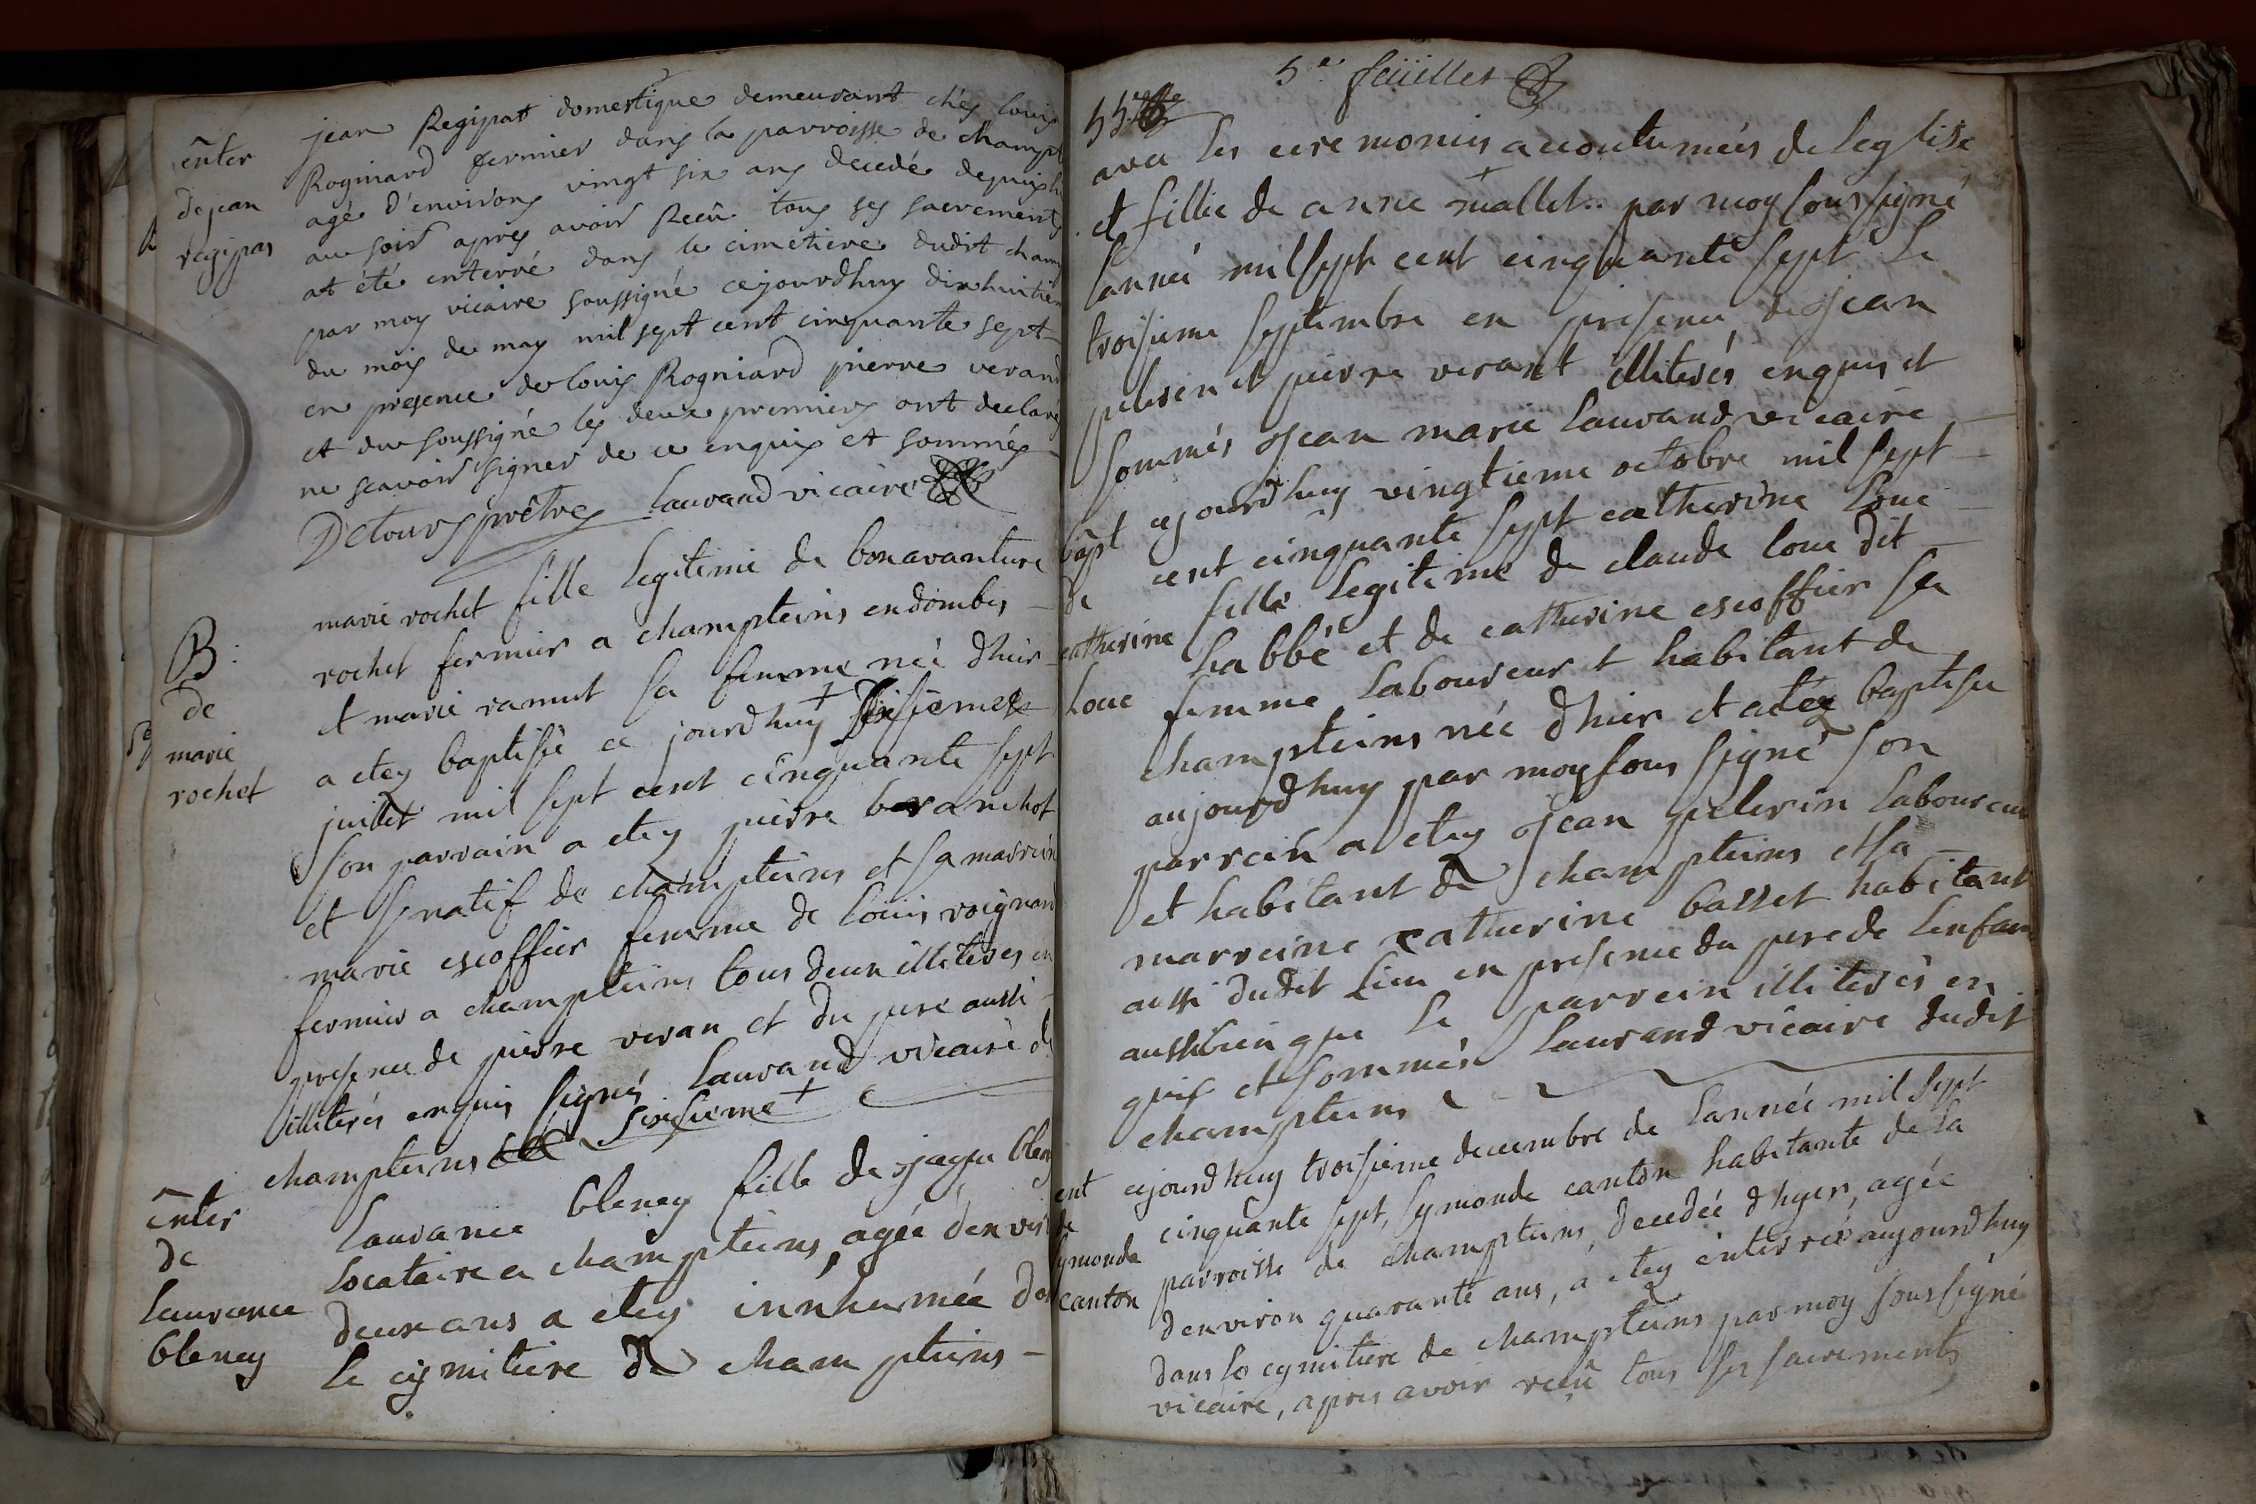 enter
de jean
regipas
jean Regipat domestique demeurant chés louis
Rogniard fermier dans la parroisse de champt
agé d'environs vingt six ans decedé depuis
au soir apres avoir Recû tous ses sacrements
at été enterré dans le cimetiere dudit cham
par moy vicaire soussigné cejourdhuy dixhuitiem
du mois de may mil sept cent cinquante sept
en presence de louis Rogniard pierre verand
et du soussigné les deux premiers ont declaré
ne scavoir signer de ce enquis et sommés
Detours prêtre laurand vicaire
B:
de
marie
rochet
marie rochet fille legitime de bonavanture
rochet fermier a champteins en dombes
et marie ramut sa femme née dhier
a etey baptisée ce jourdhuy +
juillet mil sept cent cinquante sept
son parrain a etey pierre branchot
et natif de champteins et sa marrein
marie escoffier femme de louis roignard
fermier a champteins tous deux illiteres en
presence de pierre veran et du pere aussi
illiterés enquis signés laurand vicaire de
champteins sixsieme +
enter
de
laurance
bleney
laurance bleney fille de jaque blen
locataire a champteins, agée denvir
deux ans a etey innhumée da
le cymitiere de champteins
5.e feüillet
55
avec les ceremonies acoutumées de leglise
et fillie de anne mallet.. par moy soussigné
lanneé mil sept cent cinquante sept le
troisieme septembre en presence de jean
pelerin et pierre verant illiterés enquis et
sommés jean marie laurand vicaire
bapt
de
catherine
loue
cejourdhuy vingtieme octobre mil sept
cent cinquante sept catherine loue
fille legitime de claude loue dit
labbé et de catherine escoffier sa
femme laboureur et habitant de
champteins née dhier et a etey baptisée
aujourdhuy par moy sous signé son
parrein a etey jean pelerin laboureur
et habitant de champteins et sa
marreine catherine basset habitant
aussi dudit lieu en presence du pere de lenfant
aussi bien que le parrein illiterés en
quis et sommés laurand vicaire dudit
champteins
ent
de
symonde
canton
cejourdhuy troisieme decembre de lannée mil sept
cinquante sept, symonde canton habitante de la
parroisse de champteins, decedée dhyer, agée
denviron quarante ans, a etey enterrée aujourdhuy
dans le cymitiere de champteins par moy soussigné
vicaire, apres avoir reçeû tous ses sacrements